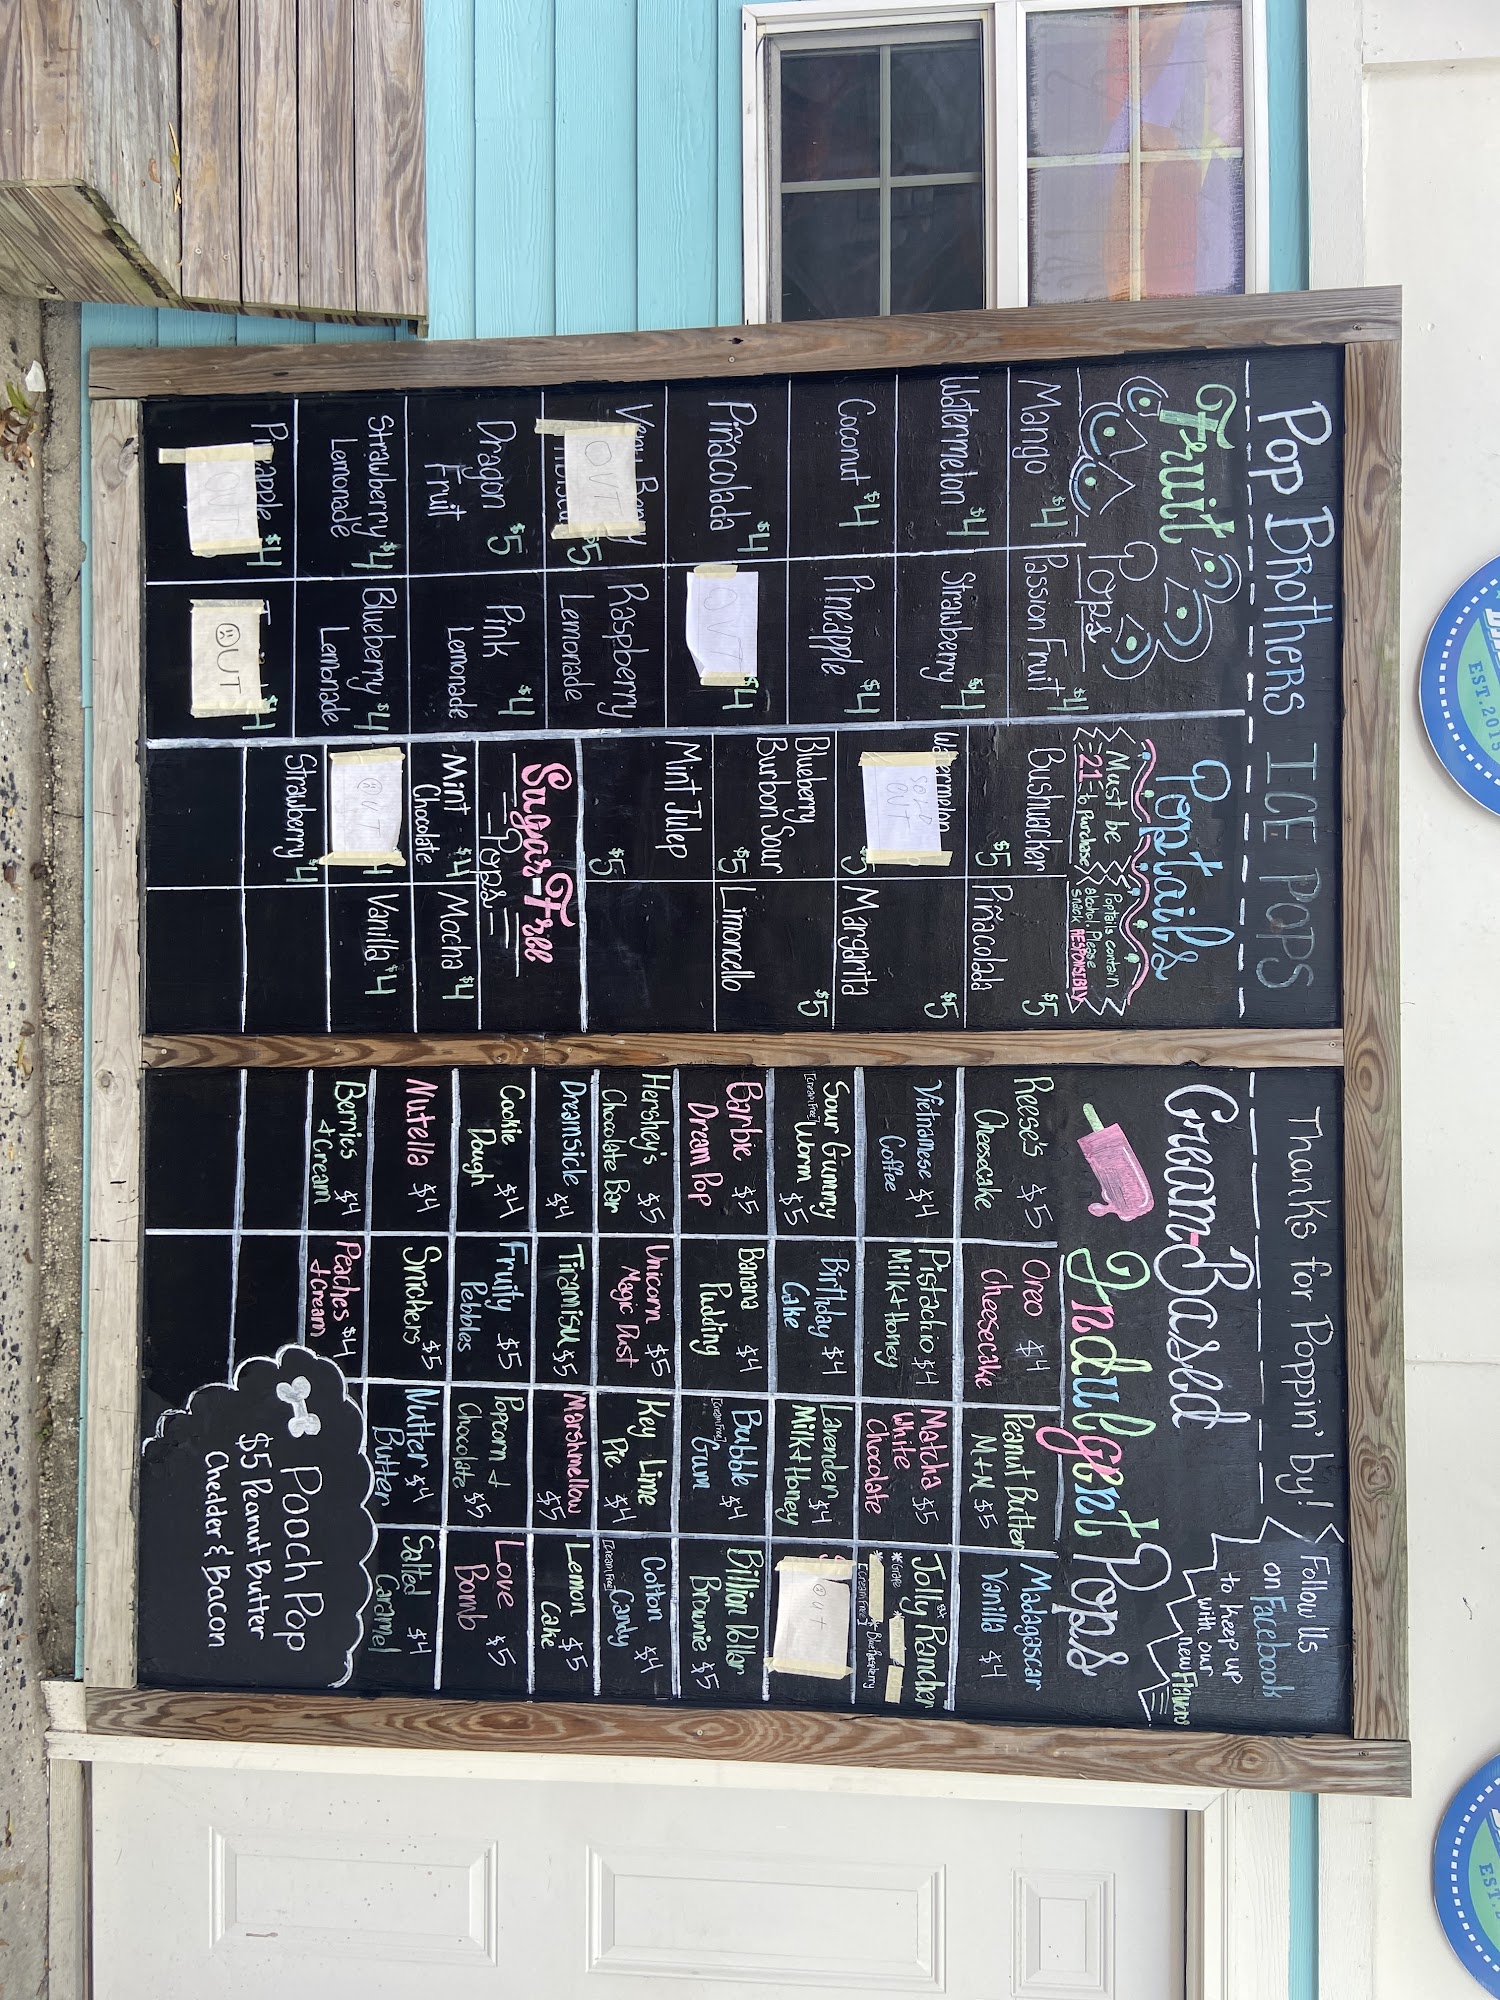 Pop Brothers ICE POPS
Fruit
Pops
Mango $4
Passion Fruit $4
Watermelon $4
Strawberry $4
Coconut $4
Pineapple $4
Piñacolada $4
OUT
$4
Very Berry
OUT
$5
Raspberry
Lemonade
Dragon
Fruit $5
Pink
Lemonade $4
Strawberry
Lemonade $4
Blueberry
Lemonade $4
OUT
$4
OUT
$4
Poptails
Must be
21 to Purchase
Poptails contain
alcohol. Please
snack RESPONSIBLY
Bushwacker $5
Piñacolada $5
Watermelon
SOLD
OUT
$5
Margarita $5
Blueberry
Burbon Sour $5
Limoncello $5
Mint Julep $5
Sugar-Free
Pops
Mint
Chocolate $4
Mocha $4
OUT
$4
Vanilla $4
Strawberry $4
Thanks for Poppin' by!
Follow Us
on Facebook
to Keep up
with our
new Flavors
Cream-Based
Indulgent Pops
Reese's
Cheesecake $5
Oreo $4
Cheesecake
Peanut Butter
M+M $5
Madagascar
Vanilla $4
Vietnamese $4
Coffee
Pistachio $4
Milk+Honey
Matcha $5
White
Chocolate
Jolly Rancher
$4
*Grape
*Blue Raspberry
[Cream Free]
Sour Gummy
[Cream Free] Worm $5
Birthday $4
Cake
Lavender $4
Milk+Honey
Out
Barbie $5
Dream Pop
Banana $4
Pudding
Bubble $4
[Cream Free] Gum
Billion Dollar
Brownie $5
Hershey's $5
Chocolate Bar
Unicorn $5
Magic Dust
Key Lime
Pie $4
Cotton $4
[Cream Free] Candy
Dreamsicle $4
Tiramisu $5
Marshmellow $5
Lemon $5
Cake
Cookie $4
Dough
Fruity $5
Pebbles
Popcorn +
Chocolate $5
Love $5
Bomb
Nutella $4
Snickers $5
Nutter $4
Butter
Salted $4
Caramel
Berries $4
+Cream
Peaches $4
+Cream
Pooch Pop
$5 Peanut Butter
Cheder & Bacon
EST. 2013
EST.